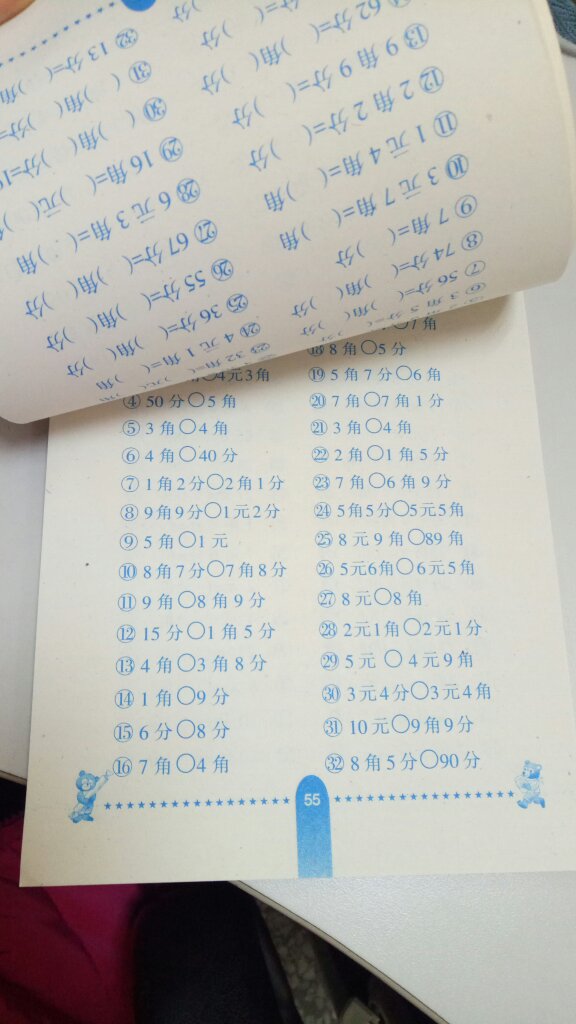 ㉜ 13分=( )角(
⑬ 9角9分=( )分
㉛ ( )角( )分=
⑫ 2角2分=( )分
㉚ ( )角(
⑪ 1元4角=( )角
㉙ 16角=( )元(
⑩ 3元7角=( )角
㉘ 6元3角=( )角
⑨ 7角=( )分
㉗ 67分=( )角( )分
⑧ 74分=( )角( )分
㉖ 55分=( )角( )分
⑦ 56分=( )角( )分
㉕ 36分=( )角( )分
㉔ 4元1角=( )角
○7角
⑱ 8角○5分
○4元3角
⑲ 5角7分○6角
④ 50分○5角
⑳ 7角○7角1分
⑤ 3角○4角
㉑ 3角○4角
⑥ 4角○40分
㉒ 2角○1角5分
⑦ 1角2分○2角1分
㉓ 7角○6角9分
⑧ 9角9分○1元2分
㉔ 5角5分○5元5角
⑨ 5角○1元
㉕ 8元9角○89角
⑩ 8角7分○7角8分
㉖ 5元6角○6元5角
⑪ 9角○8角9分
㉗ 8元○8角
⑫ 15分○1角5分
㉘ 2元1角○2元1分
⑬ 4角○3角8分
㉙ 5元○4元9角
⑭ 1角○9分
㉚ 3元4分○3元4角
⑮ 6分○8分
㉛ 10元○9角9分
⑯ 7角○4角
㉜ 8角5分○90分
55